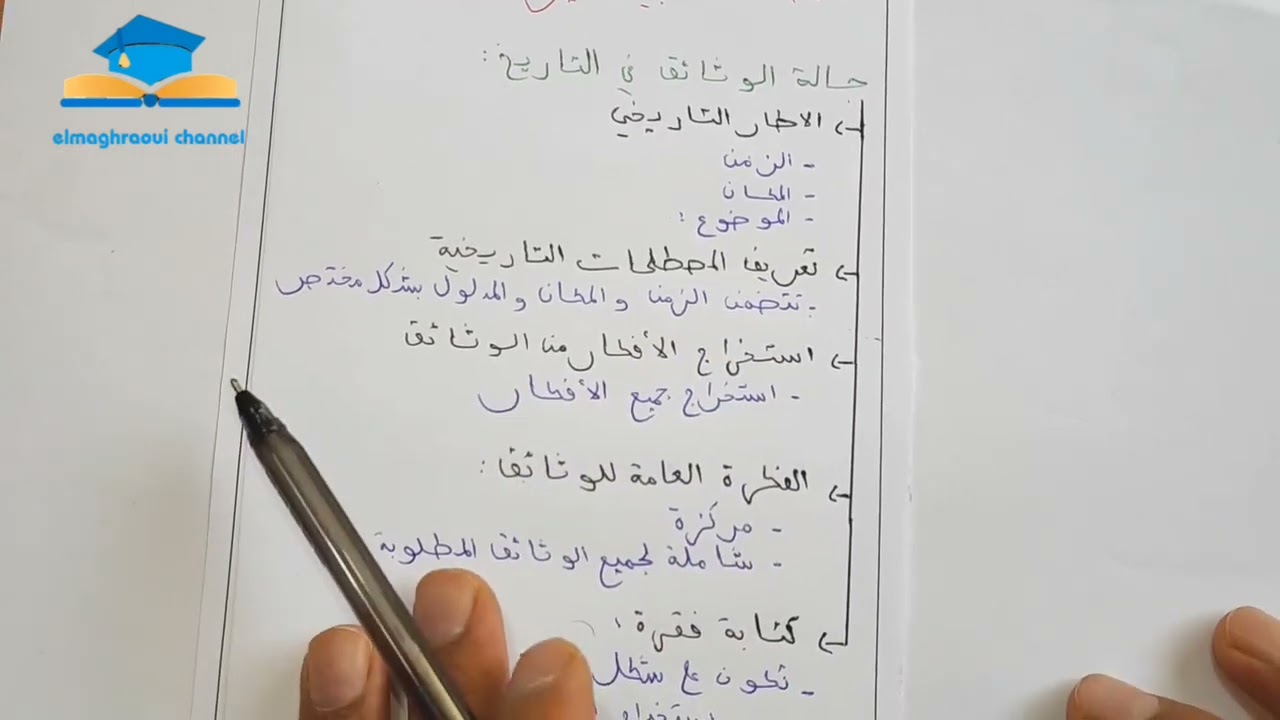 elmaghraoui channel
حالة الوثائق في التاريخ:
الاطار التاريخي
- الزمن
- المكان
- الموضوع:
تعريف المصطلحات التاريخية
- تتضمن الزمن والمكان والمدلول بشكل مختصر
استخراج الأفكار من الوثائق
- استخراج جميع الأفكار
الفكرة العامة للوثائق:
- مركزة
- شاملة لجميع الوثائق المطلوبة
كتابة فقرة:
- تكون على شكل